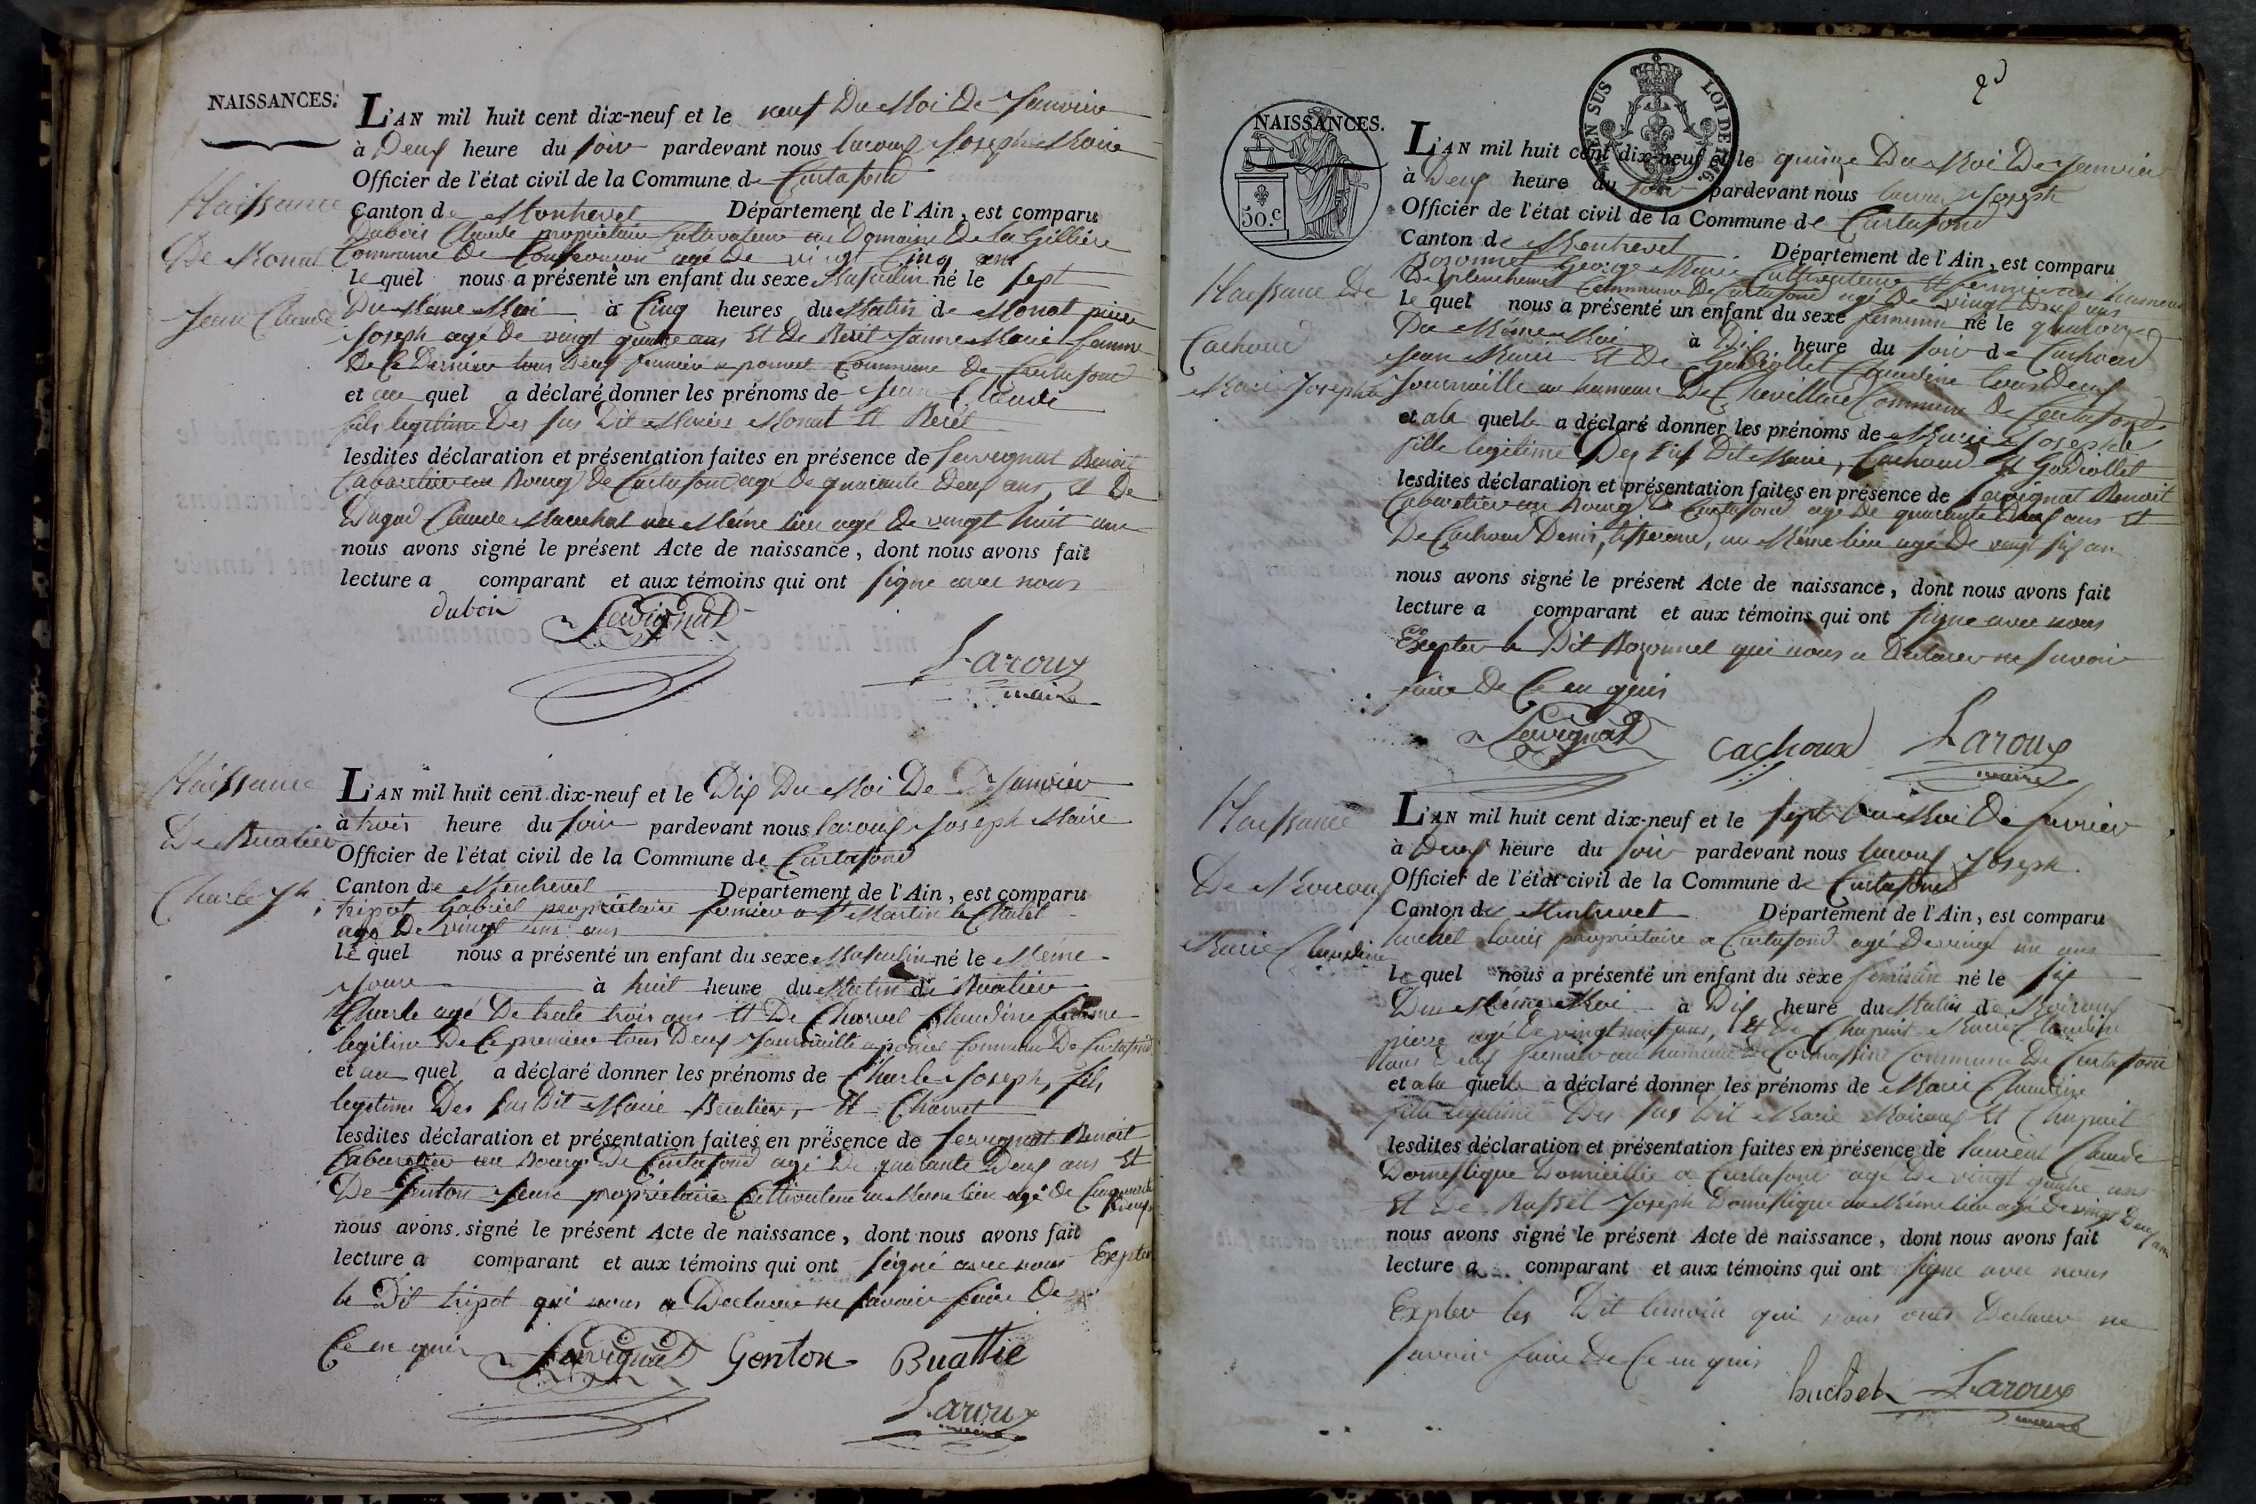 NAISSANCES.
Naissance
De Monat
Jean Claude
L'AN mil huit cent dix-neuf et le neuf Du Moi De Janvier
à Deux heure du soir pardevant nous Laroux Joseph Maire
Officier de l'état civil de la Commune de Curtafond
Canton de Montrevel Département de l'Ain, est comparu
Dubois Claude propriétaire Cultivateur au Domaine De la Gillière
Commune De Confrançon agé De vingt Cinq ans
le quel nous a présenté un enfant du sexe Masculin né le sept
Du Même Moi à Cinq heures du Matin de Monat pierre
Joseph agé De vingt quatre ans Et De Beret Janne Marie femme
De Ce Dernier tous Deux fermier a Commune De Curtafond
et au quel a déclaré donner les prénoms de Jean Claude
fils legitime Des sus Dit Mariés Monat Et Beret
lesdites déclaration et présentation faites en présence de Servignat Benoit
Cabaretier au Bourg De Curtafond agé De quarante Deux ans, Et De
Claude Marechal au Même lieu agé De vingt huit ans
nous avons signé le présent Acte de naissance, dont nous avons fait
lecture a comparant et aux témoins qui ont signe avec nous
dubois Servignat
Laroux
maire
Naissance
De Buatier
Charle Jh
L'AN mil huit cent dix-neuf et le Dix Du Moi De Janvier
à trois heure du soir pardevant nous Laroux Joseph Maire
Officier de l'état civil de la Commune de Curtafond
Canton de Montrevel Département de l'Ain, est comparu
tripot Gabriel propriétaire fermier a St Martin le Chatel
agé De vingt ans
le quel nous a présenté un enfant du sexe Masculin né le Même
Jour à huit heure du Matin de Buatier
Charle agé De trente trois ans Et De Charvet Claudine femme
legitime De Ce premier tous Deux Journaille a Commune De Curtafond
et au quel a déclaré donner les prénoms de Charle Joseph, fils
legitime Des sus Dit Marié Buatier, Et Charvet
lesdites déclaration et présentation faites en présence de Servignat Benoit
Cabaretier au Bourg De Curtafond agé De quarante Deux ans Et
De Genton propriétaire Cultivateur au Même lieu agé De Cinquante
nous avons signé le présent Acte de naissance, dont nous avons fait
lecture a comparant et aux témoins qui ont signé avec nous Expter
le Dit tripot qui nous a Declarer ne savoir faire De
Ce en quis Servignat Genton Buattie
Laroux
maire
2
NAISSANCES.
50.c
LOI DE 1816.
Naissance De
Cachoud
Marie Josephte
L'AN mil huit cent dix-neuf et le quinze Du Moi De Janvier
à Deux heure du soir pardevant nous Laroux Joseph
Officier de l'état civil de la Commune de Curtafond
Canton de Montrevel Département de l'Ain, est comparu
Bozonnet George Marie Cultivateur Et fermier au hameau
De planchemel Commune De Curtafond agé De vingt Deux ans
le quel nous a présenté un enfant du sexe feminin né le quatorze
Du Même Moi à Dix heure du soir de Cachoud
Jean Marie Et De Gadiollet Claudine tous Deux
Journaille au hameau De Chevilliere Commune De Curtafond
et a la quelle a déclaré donner les prénoms de Marie Josephte
fille legitime Des sus Dit Marié, Cachoud Et Gadiollet
lesdites déclaration et présentation faites en présence de Servignat Benoit
Cabaretier au Bourg De Curtafond agé De quarante Deux ans Et
De Cachoux Denis, tisserand, au Même lieu agé De vingt six an
nous avons signé le présent Acte de naissance, dont nous avons fait
lecture a comparant et aux témoins qui ont signe avec nous
Exepter le Dit Bozonnet qui nous a Declarer ne savoir
faire De Ce en quis
Servignat Cachoux Laroux
maire
Naissance
De Moiroux
Marie Claudine
L'AN mil huit cent dix-neuf et le sept Du Moi De fevrier
à Deux heure du soir pardevant nous Laroux Joseph
Officier de l'état civil de la Commune de Curtafond
Canton de Montrevel Département de l'Ain, est comparu
huchet Louis propriétaire a Curtafond agé De vingt un ans
le quel nous a présenté un enfant du sexe feminin né le six
Du Même Moi à Dix heure du Matin de Moiroux
pierre agé De vingt ans, Et De Chapuit Marie Claudine
tous Deux fermier au hameau De Commune De Curtafond
et a la quelle a déclaré donner les prénoms de Marie Claudine
fille legitime Des sus Dit Marie Moiroux Et Chapuit
lesdites déclaration et présentation faites en présence de Laurent Claude
Domestique Domicillié a Curtafond agé De vingt quatre ans
Et De Joseph Domestique au Même lieu agé De vingt Deux ans
nous avons signé le présent Acte de naissance, dont nous avons fait
lecture a comparant et aux témoins qui ont signe avec nous
Expter les Dit temoin qui nous ont Declarer ne
savoir faire De Ce en quis
huchet Laroux
maire